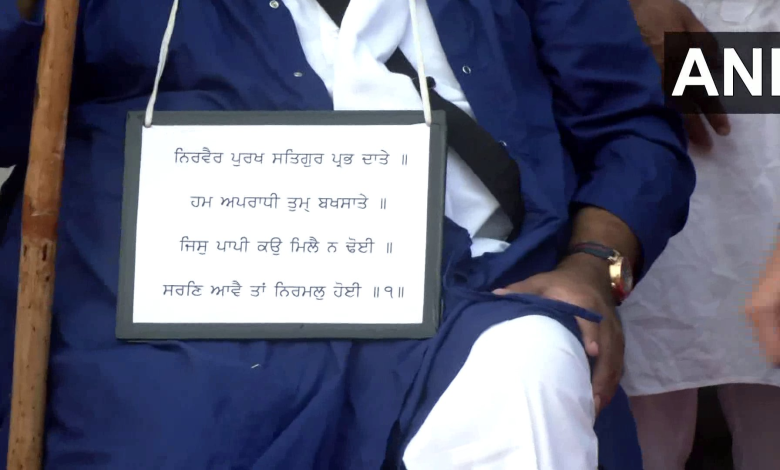 ANI
ਨਿਰਵੈਰ ਪੁਰਖ ਸਤਿਗੁਰ ਪ੍ਰਭ ਦਾਤੇ ॥
ਹਮ ਅਪਰਾਧੀ ਤੁਮ੍ ਬਖਸਾਤੇ ॥
ਜਿਸੁ ਪਾਪੀ ਕਉ ਮਿਲੈ ਨ ਢੋਈ ॥
ਸਰਣਿ ਆਵੈ ਤਾਂ ਨਿਰਮਲੁ ਹੋਈ ॥੧॥